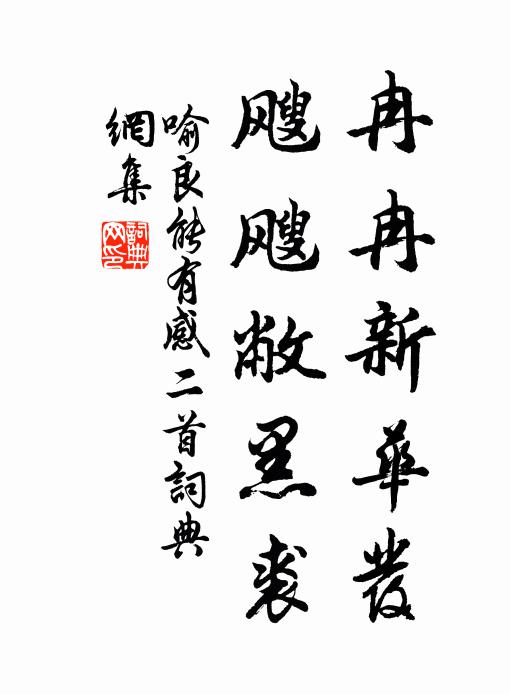 冉冉新華發
颼颼敝黑裘
喻良能有感二首詞典
網集
詞典网印